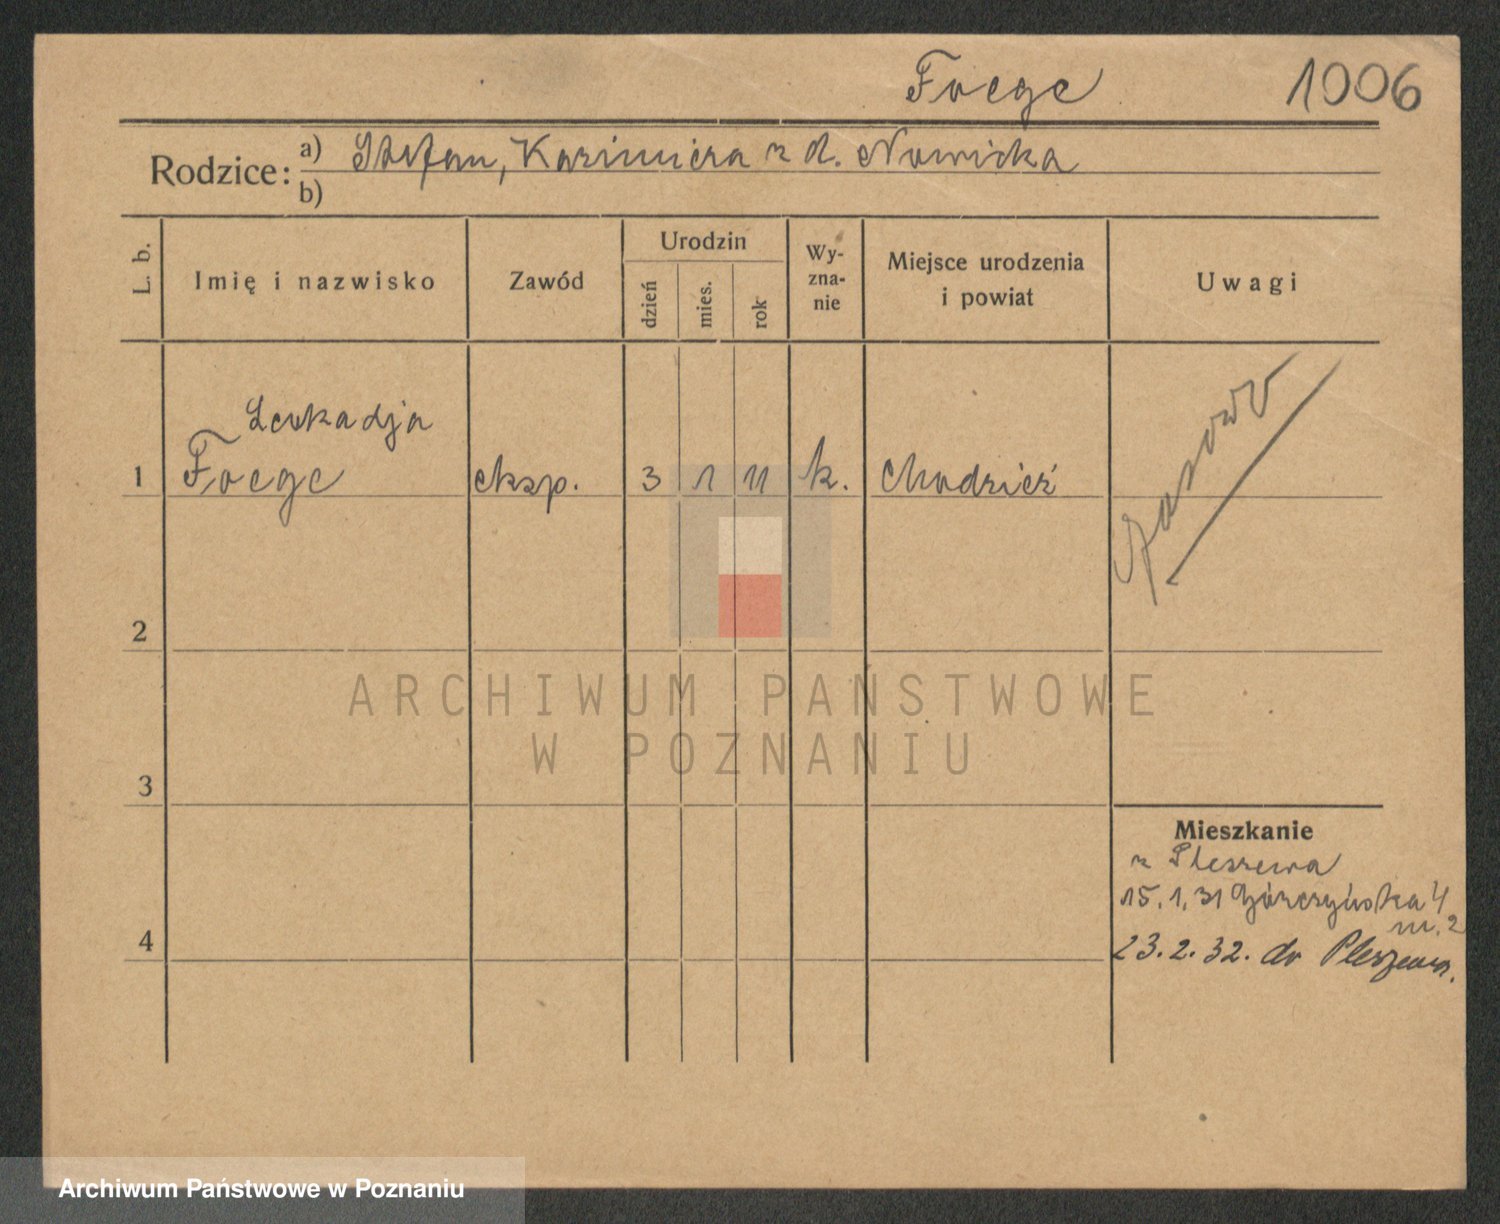 Foege 1006
Rodzice: a) Stefan, Kazimiera z d. Nowicka
b)
L. b. Imię i nazwisko Zawód Urodzin dzień mies. rok Wy-zna-nie Miejsce urodzenia i powiat Uwagi
Leokadja
1 Foege eksp. 3 1 11 k. Chodzież
2
3
4
Mieszkanie
z Pleszewa
15.1.31 Górczyńska 4
m. 2
23.2.32. do Pleszewa.
ARCHIWUM PAŃSTWOWE
W POZNANIU
Archiwum Państwowe w Poznaniu